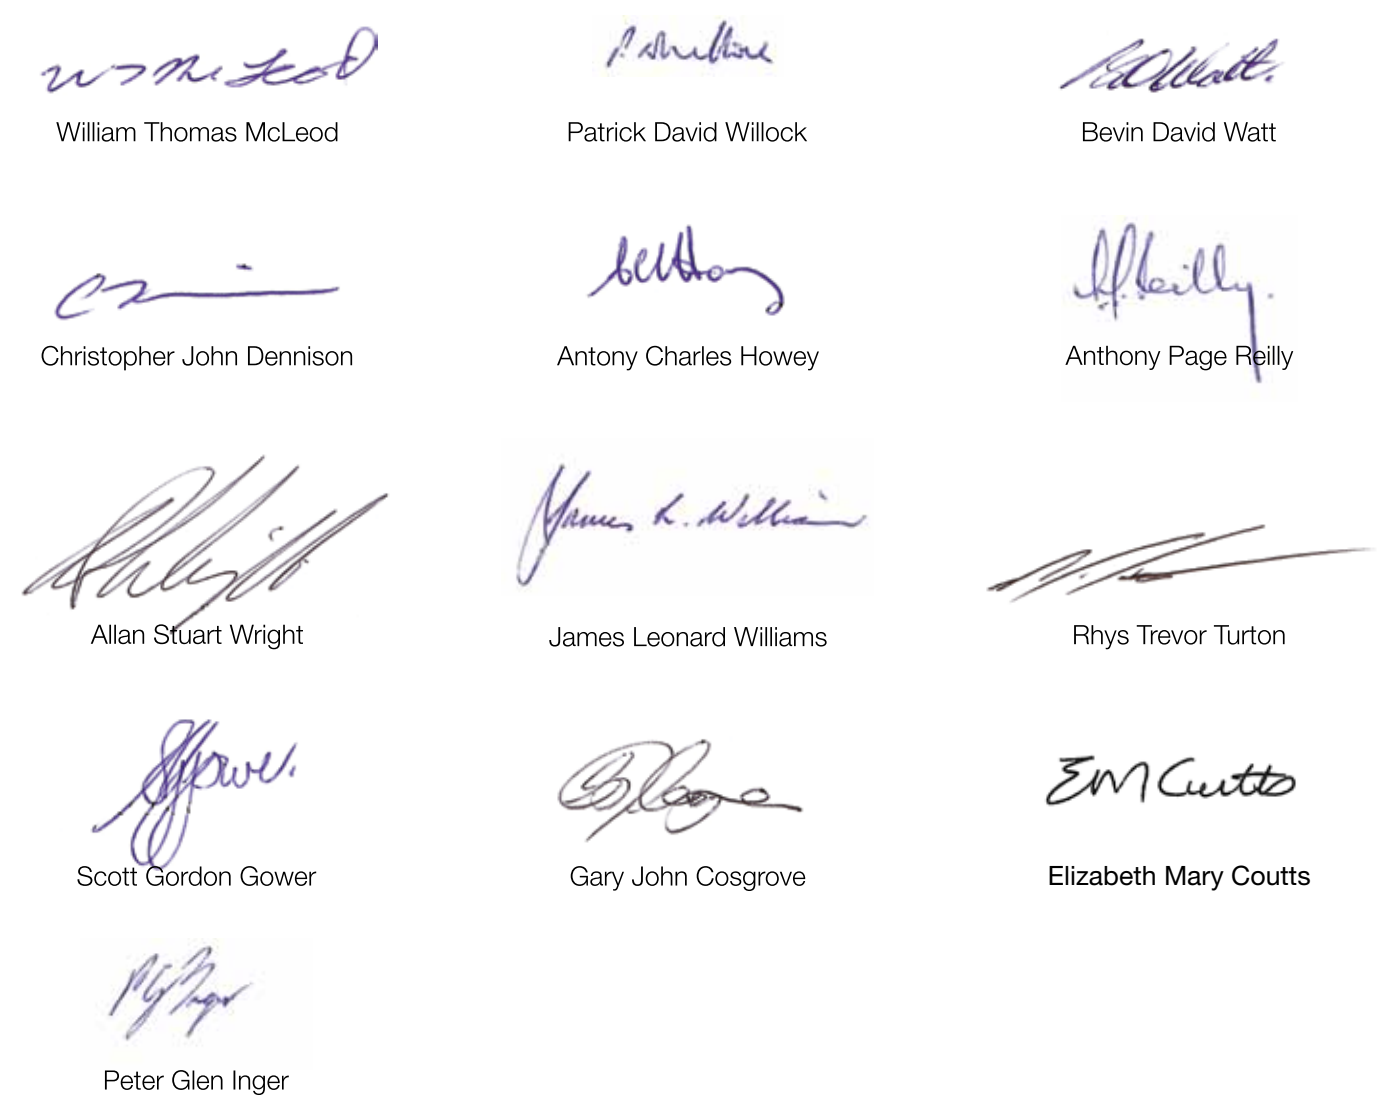 W T McLeod
William Thomas McLeod
Patrick David Willock
Bevin David Watt
Christopher John Dennison
Antony Charles Howey
A.P. Reilly.
Anthony Page Reilly
Allan Stuart Wright
James L. Williams
James Leonard Williams
Rhys Trevor Turton
SGGower.
Scott Gordon Gower
Gary John Cosgrove
EM Coutts
Elizabeth Mary Coutts
PG Inger
Peter Glen Inger